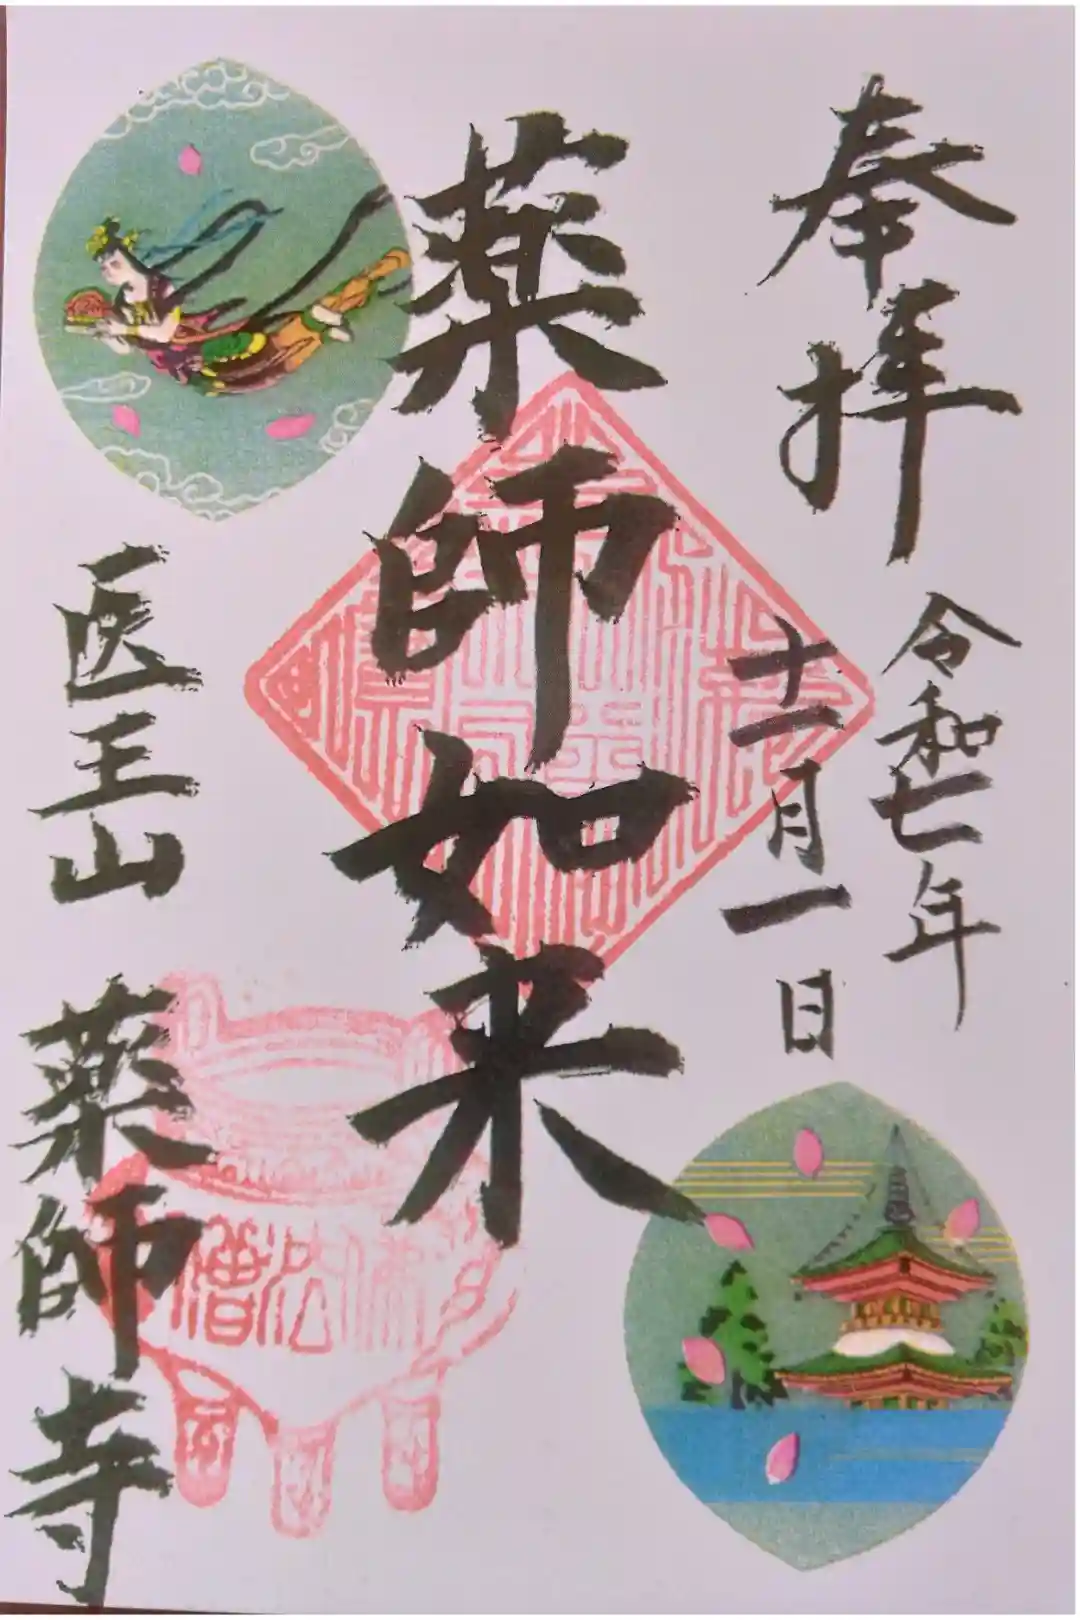 奉拝
令和七年
十一月一日
薬師如来
医王山
薬師寺